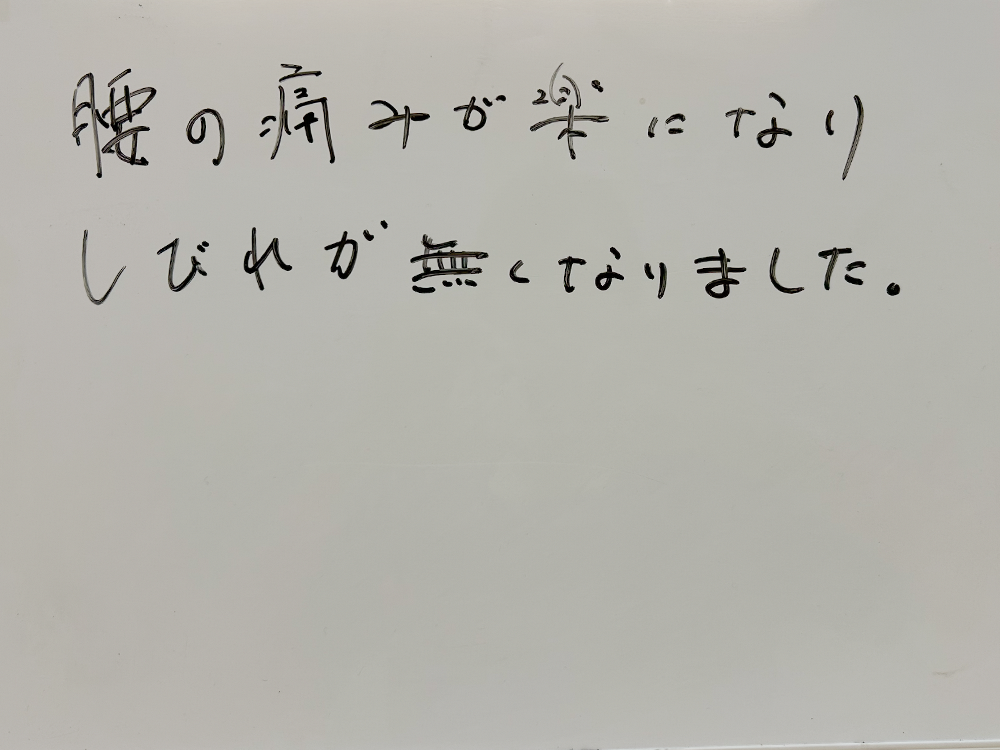 腰の痛みが楽になり
しびれが無くなりました.